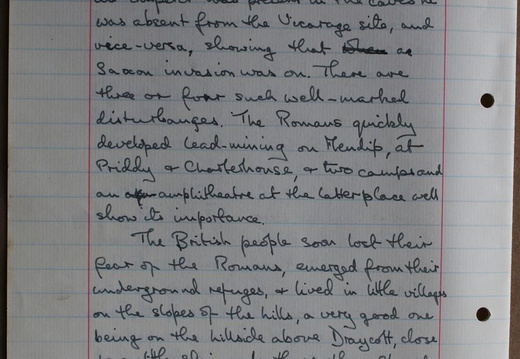 was absent from the Vicarage site, and
vice-versa, showing that when a
Saxon invasion was on. There are
three or four such well-marked
disturbances. The Romans quickly
developed lead-mining on Mendip, at
Priddy & Charterhouse, & two camps and
an amphitheatre at the latter place well
show its importance.
The British people soon lost their
fear of the Romans, emerged from their
underground refuges, & lived in little villages
on the slopes of the hills, a very good one
being on the hillside above Draycott, close